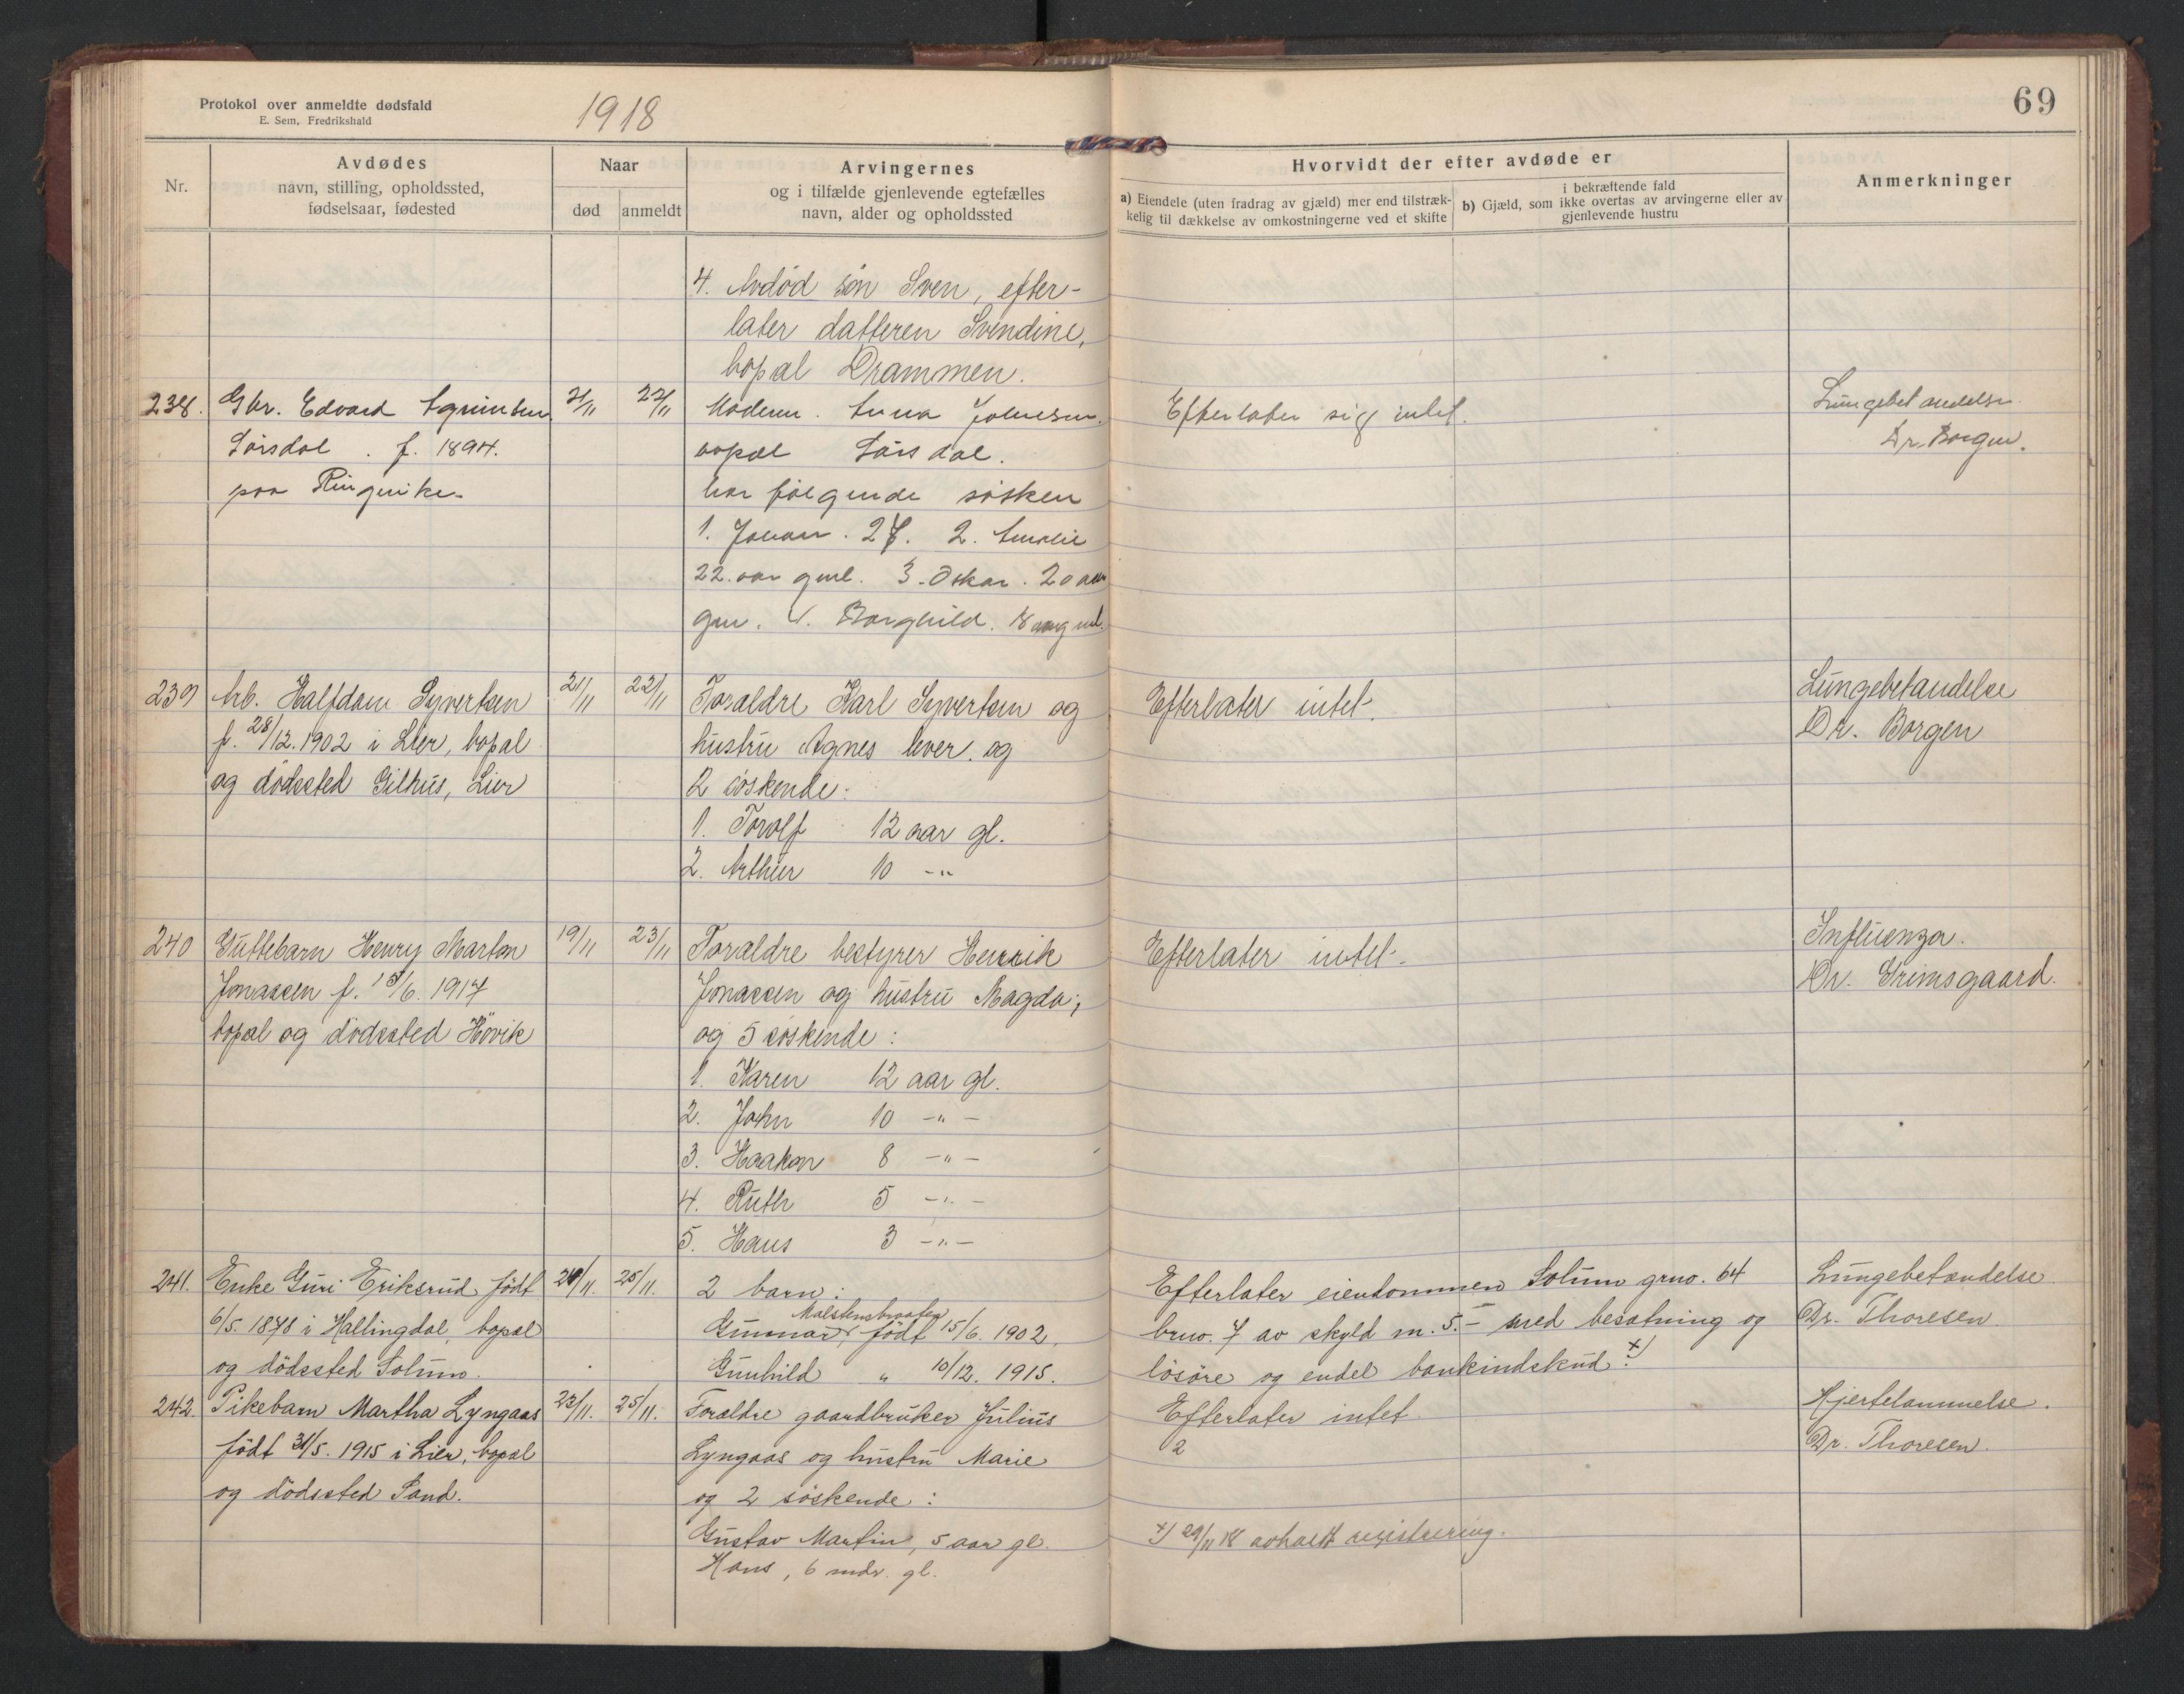 Protokol over anmeldte dødsfald
E. Sem, Fredrikshald
1918
69
Nr.
Avdødes
navn, stilling, opholdssted,
fødselsaar, fødested
Naar
død
anmeldt
Arvingernes
og i tilfælde gjenlevende egtefælles
navn, alder og opholdssted
Hvorvidt der efter avdøde er
a) Eiendele (uten fradrag av gjæld) mer end tilstræk-
kelig til dækkelse av omkostningerne ved et skifte
i bekræftende fald
b) Gjæld, som ikke overtas av arvingerne eller av
gjenlevende hustru
Anmerkninger
4. Avdød søn Sven, efter-
later datteren Svendine,
bopæl Drammen.
238. Gbr. Edvard
21/11 22/11
Moderen. Anna Johnsen.
Efterlater sig intet.
Lungebetændelse
Dr. Borgen.
f. 1894.
bopæl
paa Ringerike.
har følgende søsken
1. Johan. 27. 2. Amalie
22. aar gml. 3. Oskar. 20 aar
gm. 4. Borghild. 18 aar gml.
239 Arb. Halfdan Syvertsen
21/11 22/11
Forældre Karl Syvertsen og
Efterlater intet.
Lungebetændelse
Dr. Borgen
f. 28/12.1902 i Lier, bopæl
hustru Agnes lever. og
og dødssted Gilhus, Lier
2 søskende:
1. Torolf 12 aar gl.
2. Arthur 10 -"-
240 Guttebarn Henry Marton
19/11 23/11
Forældre bestyrer Henrik
Efterlater intet.
Influenza.
Dr. Grimsgaard.
Jonassen f. 15/6. 1917
Jonassen og hustru Magda;
bopæl og dødssted Høvik
og 5 søskende:
1. Karen 12 aar gl.
2. John 10 -"-
3. Haakon 8 -"-
4. Ruth 5 -"-
5. Hans 3 -"-
241. Enke Guri Eriksrud, født
/11. 25/11.
2 barn:
Efterlater eiendommen Solum grno. 64
Lungebetændelse
6/5. 1878 i Hallingdal, bopæl
Gunnar født 15/6. 1902,
brno. 7 av skyld m. 5.- med besætning og
Dr. Thoresen.
og dødssted Solum.
Gunhild " 10/12. 1915.
løsøre og endel bankindskud. x)
242. Pikebarn Martha Lyngaas
22/11. 25/11.
Forældre gaardbruker Julius
Efterlater intet
Hjertelammelse.
født 31/5. 1915 i Lier, bopæl
Lyngaas og hustru Marie
2
Dr. Thoresen.
og dødssted Sand.
og 2 søskende:
Gustav Martin, 5 aar gl.
x) 29/11 18 avholdt registrering.
Hans, 6 mdr. gl.